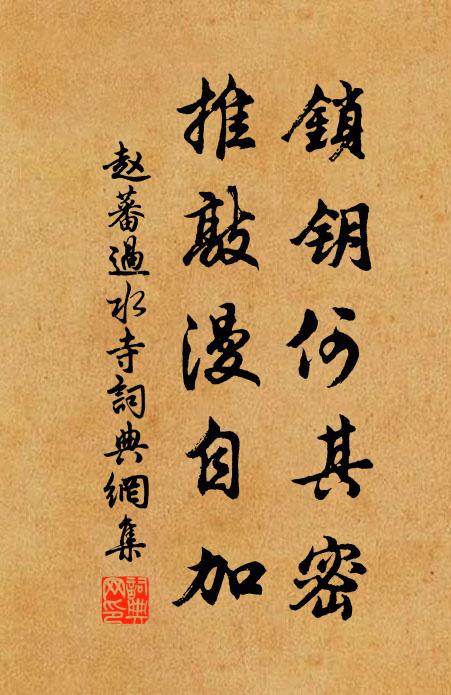 鎖钥何其密
推敲漫自加
赵蕃過水寺詞典網集
詞典網印